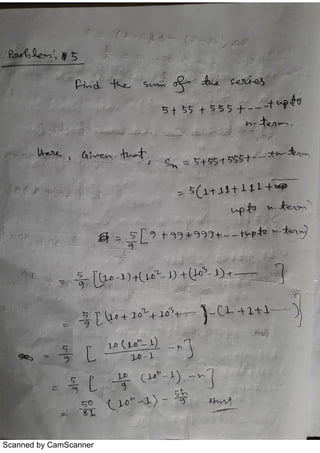 Problem: # 5
Find the sum of the series
5 + 55 + 555 + -- + upto
n-term.
Here, Given that, Sn = 5+55+555+--+n-term
= 5(1+11+111+
upto n-term)
= 5/9 [9+99+999+--+upto n-term)
= 5/9 [(10-1)+(10²-1)+(10³-1)+—— ]
= 5/9 [(10+10²+10³+-- )-(1+1+1---)]
= 5/9 [ 10(10ⁿ-1)/10-1 -n]
= 5/9 [ 10/9 (10ⁿ-1) -n]
= 50/81 (10ⁿ-1) - 5n/9 Ans
Scanned by CamScanner